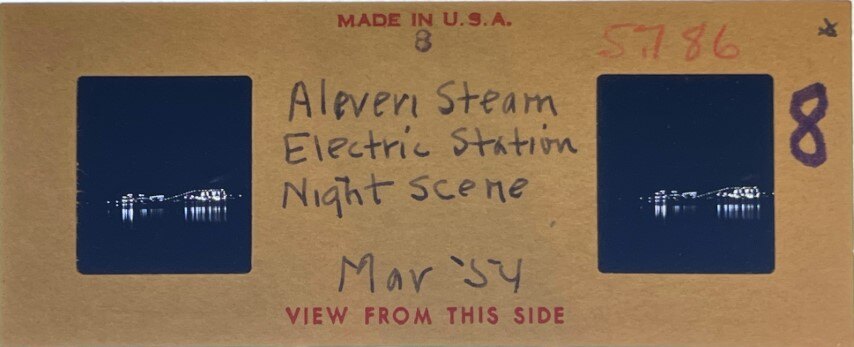 MADE IN U.S.A.
8
5786
8
Aleveri Steam
Electric Station
Night Scene
Mar '54
VIEW FROM THIS SIDE